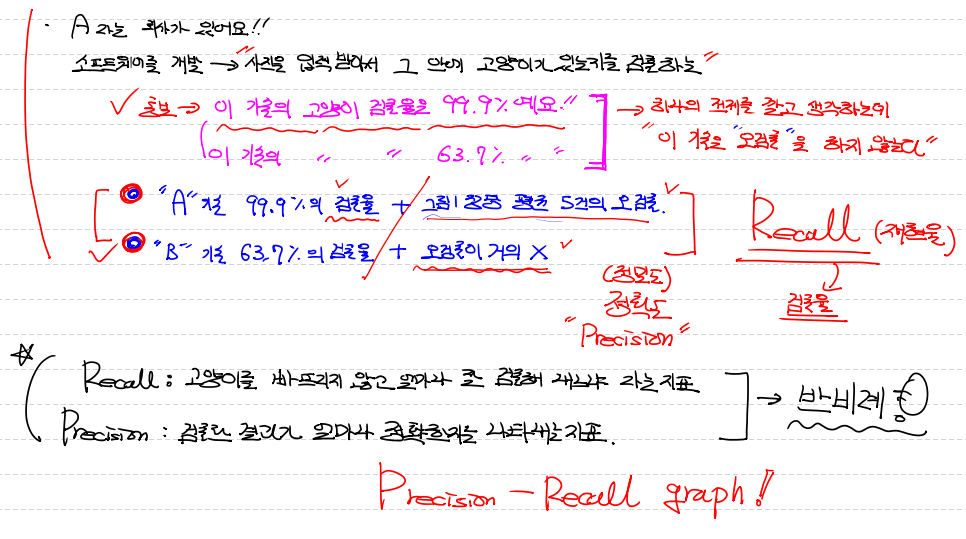 · A라는 회사가 있어요!!
소프트웨어를 개발 → "사진을 입력 받아서 그 안에 고양이가 있는지를 검출하는"
✓ 홍보 → 이 기술의 고양이 검출율은 99.9% 예요." → 회사의 전제를 깔고 생각하는데
이 기술의 " " 63.7% " " "이 기술은 "오검출"을 하지 않는다"
"A" 기술 99.9%의 검출율 + 그림 1장당 평균 5건의 오검출.
"B" 기술 63.7%의 검출율 + 오검출이 거의 X
Recall (재현율)
검출율
(정밀도)
정확도
"Precision"
Recall : 고양이를 빠뜨리지 않고 얼마나 잘 검출해 내느냐 라는 지표
Precision : 검출된 결과가 얼마나 정확한지를 나타내는 지표.
→ 반비례
Precision – Recall graph!